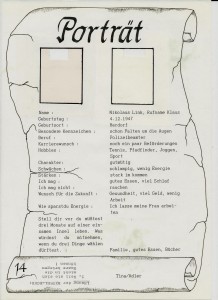 Porträt
Name : Nikolaus Link, Rufname Klaus
Geburtstag : 4.12.1947
Geburtsort : Bendorf
Besondere Kennzeichen : schon Falten um die Augen
Beruf : Polizeibeamter
Karrierewunsch : noch ein paar Beförderungen
Hobbies : Tennis, Fußball, Joggen,
Sport
Charakter: gutmütig
Schwächen : schlampig, wenig Energie
Stärken : stark im kommen
Ich mag : gutes Essen, viel Schlaf
Ich mag nicht : rauchen
Wunsch für die Zukunft : Gesundheit, viel Geld, wenig
Arbeit
Wie sparst Du Energie : Ich lasse meine Frau arbei-
ten
Stell dir vor du dürftest
drei Monate auf einer ein-
samen Insel leben. Was
würdest du mitnehmen,
wenn du drei Dinge wählen
dürftest. Familie, gutes Essen, Bücher
14
Tina/Heike